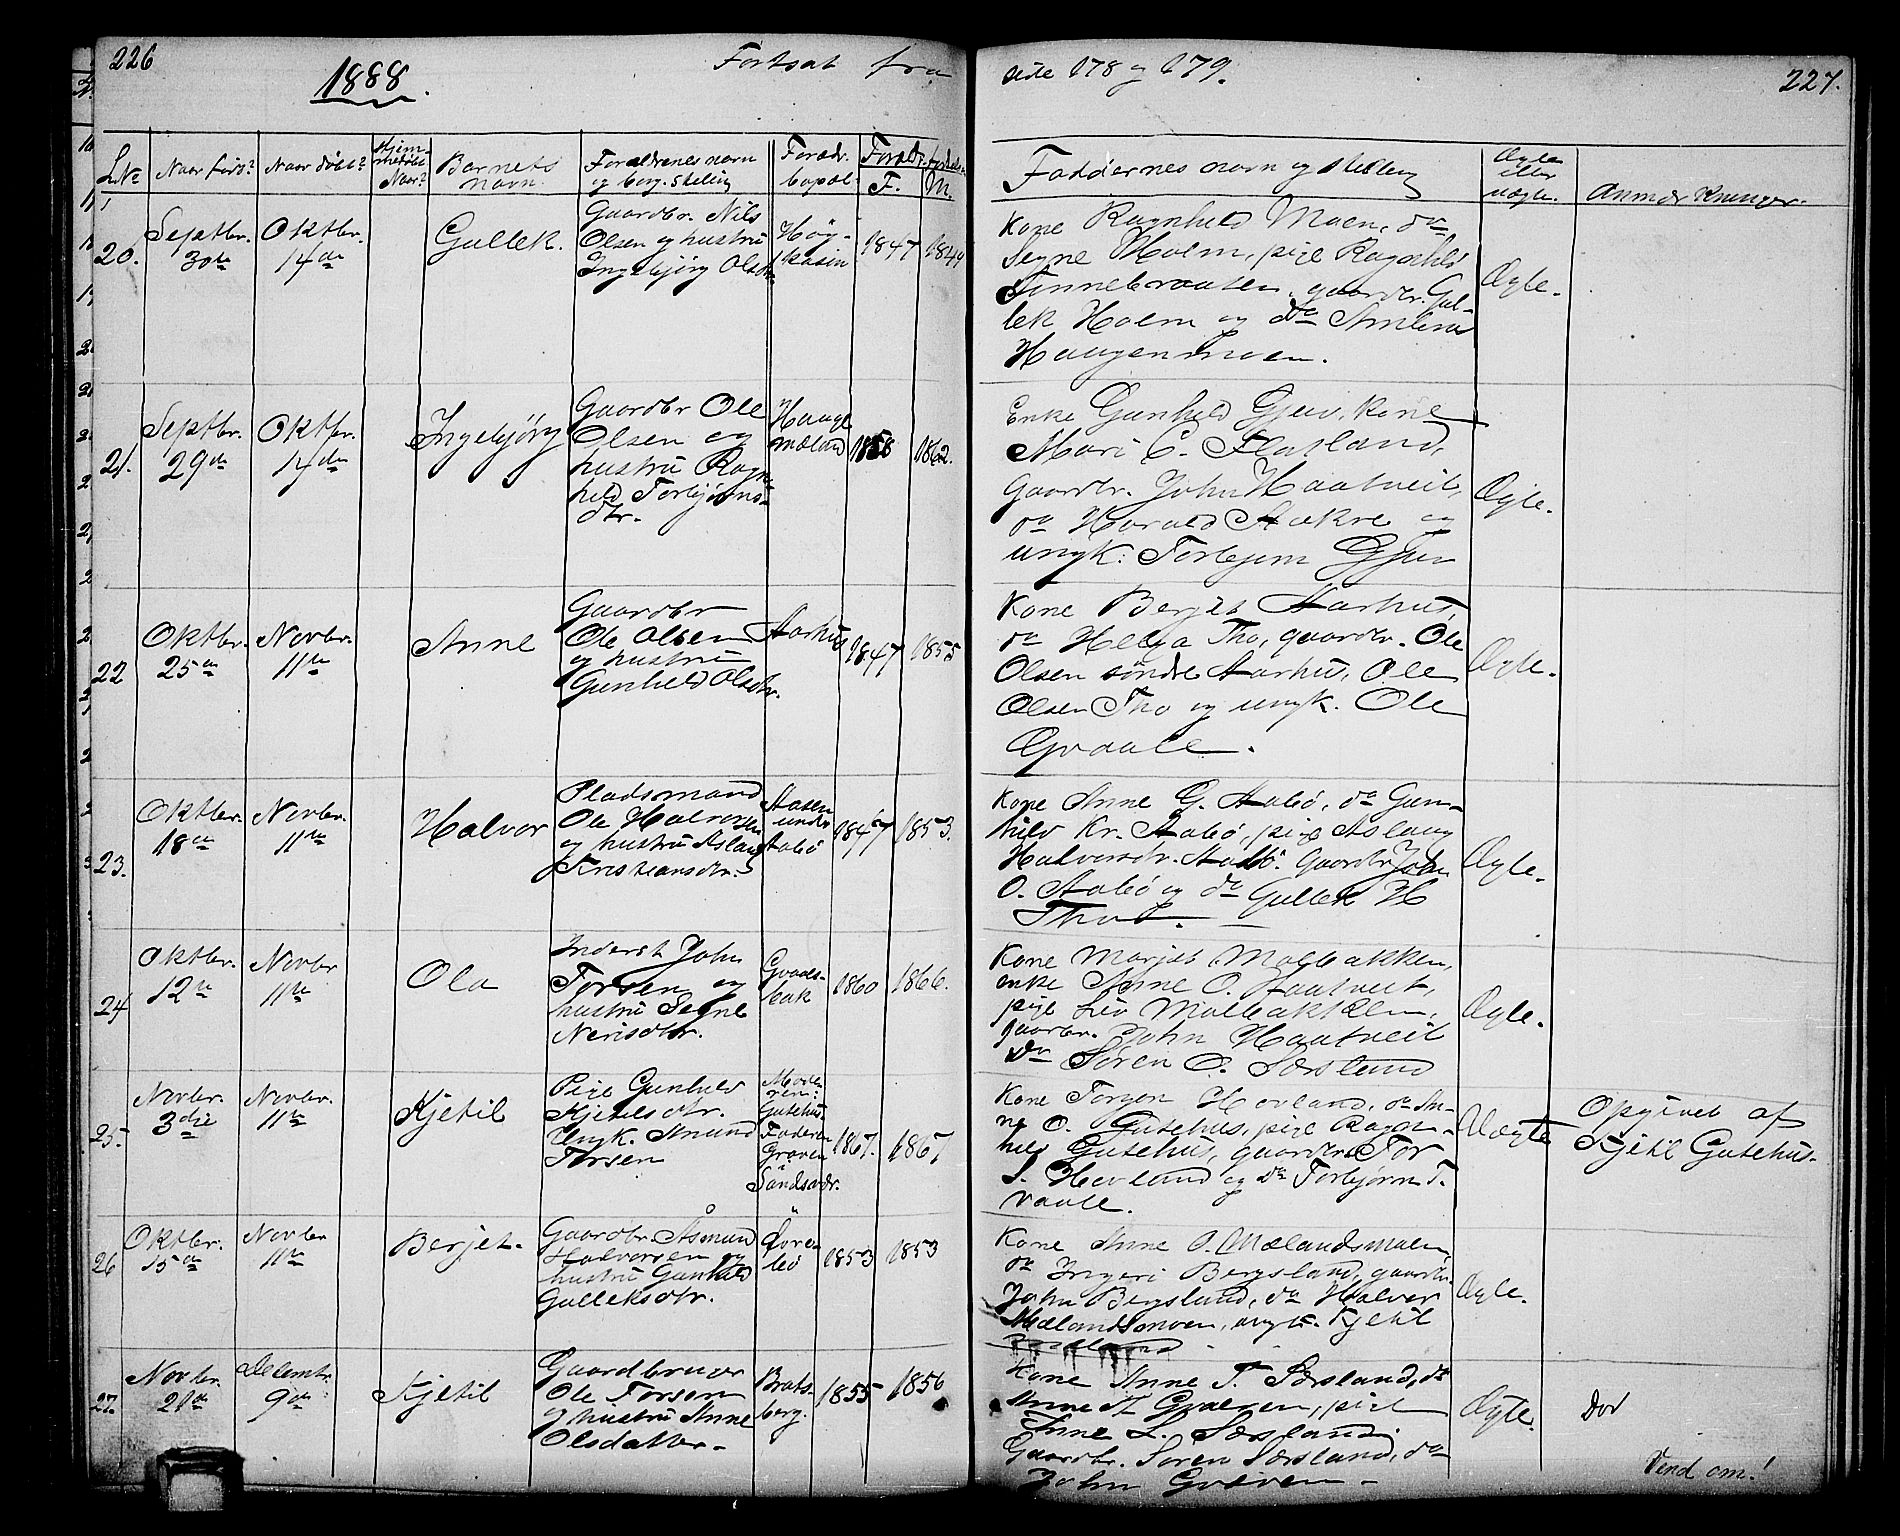 226
1888.
Fortsat fra
L.No
Naar född?
Naar döbt?
Hjem-
medöbt
Naar?
Barnets
navn.
Forældrenes navn
og borg. stelling
Forældr.
bopæl.
F.
M.
20.
Septbr.
30te
Oktbr.
14de
Gullek.
Gaardbr. Nils
Olsen og hustru
Ingebjörg Olsdtr.
Hög-
kasin
1847
1849
21.
Septbr.
29de
Oktbr.
14de
Ingebjörg
Gaardbr Ole
Olsen og
hustru Ragn-
hild Torbjörns-
dtr.
Haugl
mæland
1858
1862.
22
Oktbr.
25de
Novbr.
11te
Anne
Gaardbr
Ole Olsen
og hustru
Gunhild Olsdtr.
Aarhus
1847
1855
23.
Oktbr.
18de
Novbr.
11te
Halvor
Pladsmand
Ole Halvorsen
og hustru Aslaug
Kristiansdtr.
Aasen
under
Aabö
1847
1853.
24
Oktbr.
12te
Novbr
11te
Ola
Inderst John
Torsen og
hustru Segne
Nerisdtr.
Gvaals-
bak
1860
1866.
25.
Novbr.
3die
Novbr.
11te
Kjetil
Pige Gunhild
Kjetilsdtr.
Ungk. Amund
Torsen
Moder-
en:
Gutehus
Faderen
Graven
Sandsvær.
1867.
1867
26
Oktbr.
15de
Novbr
11te
Berjet.
Gaardbr. Åsmund
Halvorsen og
hustru Gunhild
Gulleksdtr.
Övre-
bö
1853
1853
27.
Novbr.
21de
Decembr.
9de
Kjetil
Gaardbruger
Ole Torsen
og hustru Anne
Olsdatter-
Brats-
berg.
1855
1856
side 178 og 179.
227.
Faddernes navn og stelling
Ægte
eller
uægte.
Anmærkninger.
Kone Ragnhild Moen, do
Segne Holm, pige Ragnhild
Tinnebraaten, gaardbr. Gul-
lek Holm og do
Haugenmoen.
Ægte.
Enke Gunhild Gjew, Kone
Mari C. Flatland,
Gaardbr. John Haatveit,
do Harald Aakre og
ungk. Torbjørn Gjew
Ægte.
Kone Berjet Aarhus,
do Helga Tho, gaardbr. Ole
Olsen söndre Aarhus, Ole
Olsen Tho og ungk. Ole
Gvaale.
Ægte.
Kone Anne G. Aabö, do Gun-
hild Kr. Aabö, pige Aslaug
Halvorsdtr. Aabö. Gaardbr John
O. Aabö og do Gullek H
Tho.
Ægte.
Kone Marjet Molbakken,
enke Anne O. Haatveit,
pige Liv Molbakken,
gaardbr. John Haatveit
do Sören O. Særsland
Ægte.
Kone Torgon Hovland, do An-
ne O. Gutehus, pige Ragn-
hild Gutehus, gaardbr. Tor
S. Hovland og do Torbjörn T.
vaale.
Uægte
Opgivet af
Kjetil Gutehus.
Kone Anne O. Mælandsmoen,
do Ingeri Bergsland, gaardbr.
John Bergsland, do Halvor
Mælandsmoen, ungk. Kjetil
Ægte.
Kone Anne T. Særsland, do
Anne A Graven, pige
Anne L. Særsland.
Gaardbr. Sören Særsland, do
John Graven-
Ægte.
Död
Vend om!